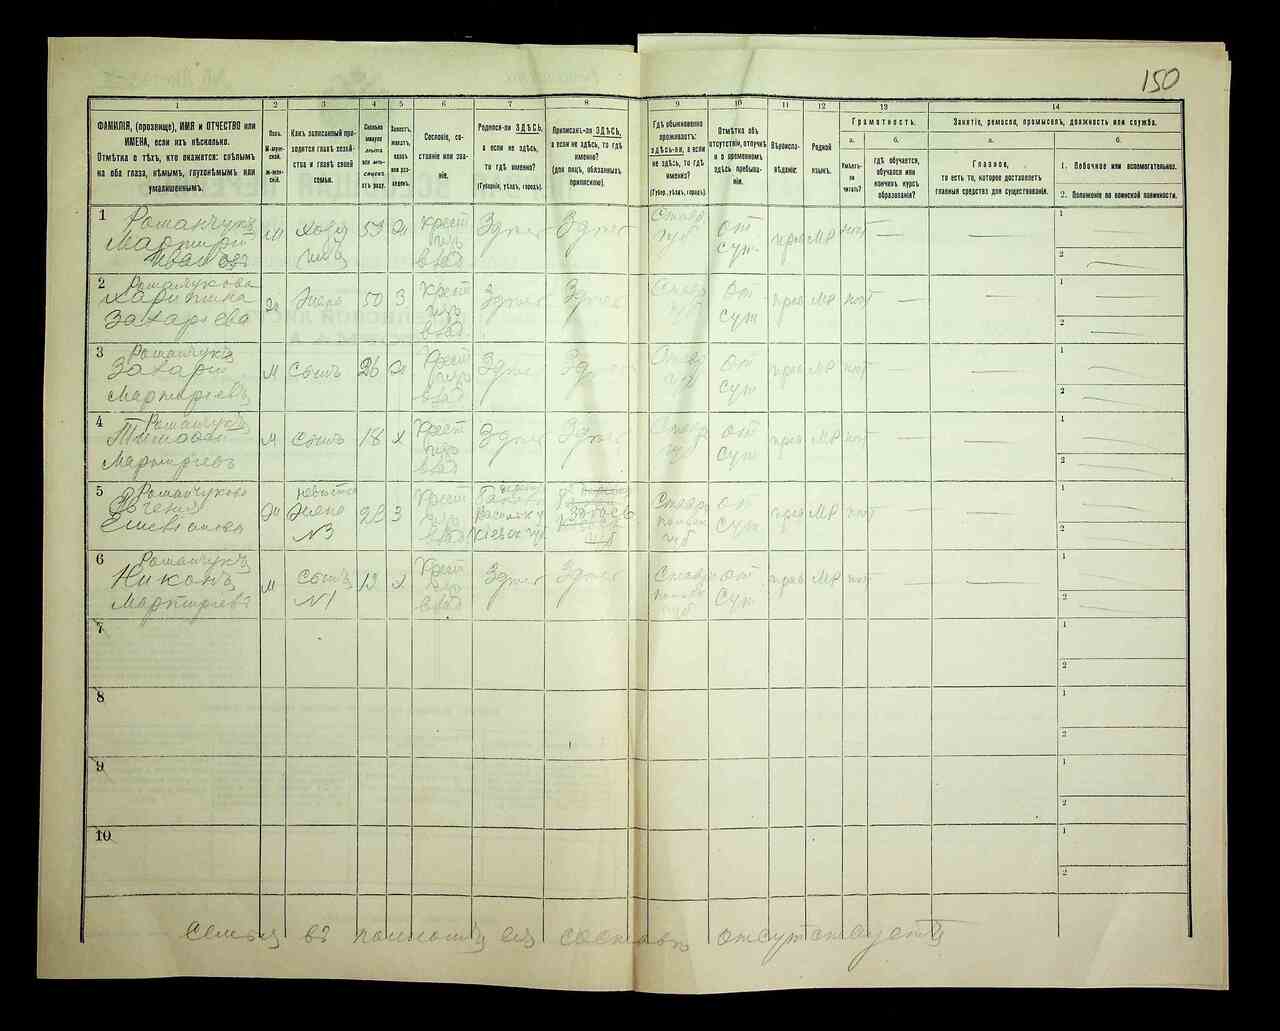 150
1
2
3
4
5
6
7
8
9
10
11
12
13
14
ФАМИЛІЯ, (прозвище), ИМЯ и ОТЧЕСТВО или
ИМЕНА, если ихъ нѣсколько.
Отмѣтка о тѣхъ, кто окажется: слѣпымъ
на оба глаза, нѣмымъ, глухонѣмымъ или
умалишеннымъ.
Полъ.
М-муж-
ской.
Ж-жен-
скій.
Какъ записанный при-
ходится главѣ хозяй-
ства и главѣ своей
семьи.
Сколько
минуло
лѣтъ
или мѣ-
сяцевъ
отъ роду.
Холостъ,
женатъ,
вдовъ
или раз-
веденъ.
Сословіе, со-
стояніе или зва-
ніе.
Родился-ли ЗДѢСЬ,
а если не здѣсь,
то гдѣ именно?
(Губернія, уѣздъ, городъ).
Приписанъ-ли ЗДѢСЬ,
а если не здѣсь, то гдѣ
именно?
(для лицъ, обязанныхъ
припискою).
Гдѣ обыкновенно
проживаетъ:
здѣсь-ли, а если
не здѣсь, то гдѣ
именно?
(Губер., уѣздъ, городъ).
Отмѣтка объ
отсутствіи, отлучкѣ
и о временномъ
здѣсь пребыва-
ніи.
Вѣроиспо-
вѣданіе.
Родной
языкъ.
Грамотность.
а.
Умѣетъ-
ли
читать?
б.
гдѣ обучается,
обучался или
кончилъ курсъ
образованія?
Занятіе, ремесло, промыселъ, должность или служба.
а.
Главное,
то есть то, которое доставляетъ
главныя средства для существованія.
б.
1. Побочное или вспомогательное.
2. Положеніе по воинской повинности.
1 Романчукъ
Мартирій
Ивановъ
м
хозя
инъ
53
ж
крест
изъ
влад
Здѣсь
Здѣсь
Ставр
губ
от
сут
прав
МР
нѣт
—
—
1
2
2 Романчукова
Харитина
Захарьева
жена
50
З
Крест
изъ
влад
Здѣсь
Здѣсь
Ставр
губ
от
сут
прав
МР
нѣт
—
—
1
2
3 Романчукъ
Захарій
Мартирьевъ
м
сынъ
26
ж
Крест
изъ
влад
Здѣсь
Здѣсь
Ставр
губ
от
сут
прав
МР
нѣт
—
1
2
4 Романчукъ
Тимофей
Мартирьевъ
м
сынъ
18
х
Крест
изъ
влад
Здѣсь
Здѣсь
Ставр
губ
от
сут
прав
МР
нѣт
—
—
1
2
5 Романчукова
Евгенія
невѣстка
жена
№3
23
З
Крест
изъ
влад
Ставр
губ
от
сут
прав
МР
нѣт
—
—
1
2
6 Романчукъ
Никонъ
Мартирьевъ
м
сынъ
№1
12
х
Крест
изъ
влад
Здѣсь
Здѣсь
Ставр
губ
от
сут
прав
МР
нѣт
—
—
1
2
7
1
2
8
1
2
9
1
2
10
1
2
семья въ полномъ ея составѣ отсутствуетъ